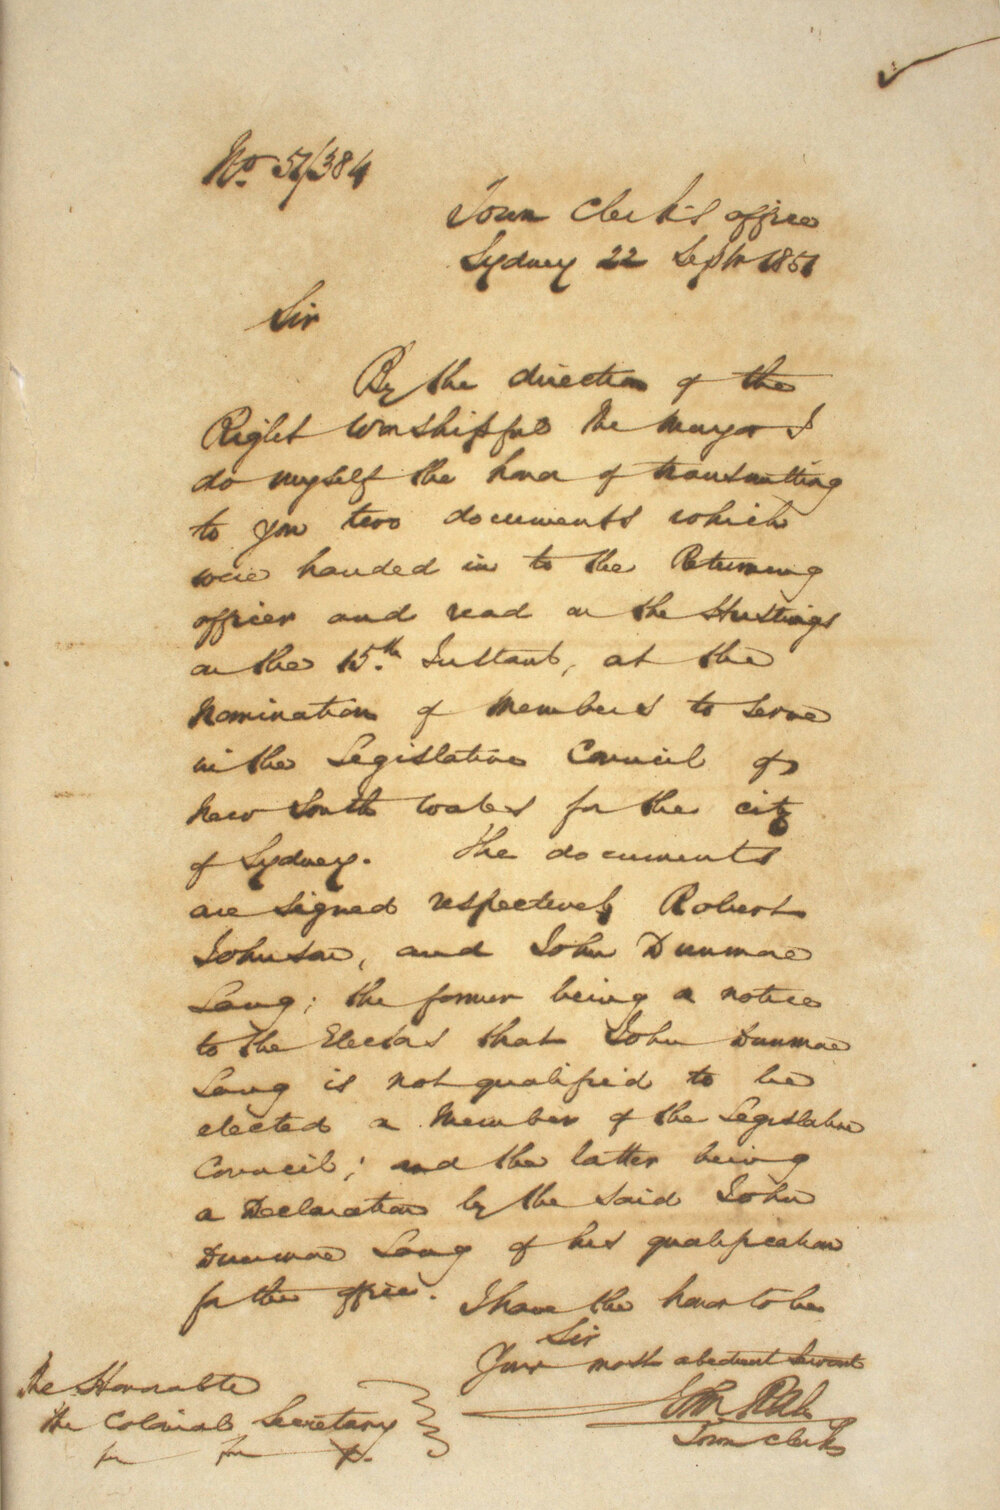 No. 51/384
Town Clerk's office
Sydney 22 Septr 1851
Sir
By the direction of the
Right Worshipful the Mayor I
do myself the honor of transmitting
to you two documents which
were handed in to the Returning
officer and read on the Hustings
on the 15th Instant, at the
Nomination of Members to serve
in the Legislative Council of
New South Wales for the city
of Sydney. The documents
are signed respectively Robert
Johnson, and John Dunmore
Lang; the former being a notice
to the Electors that John Dunmore
Lang is not qualified to be
elected a Member of the Legislative
Council; and the latter being
a Declaration by the said John
Dunmore Lang of his qualification
for the office.
I have the honor to be
Sir
Your most obedient Servant
Town Clerk
The Honorable
the Colonial Secretary